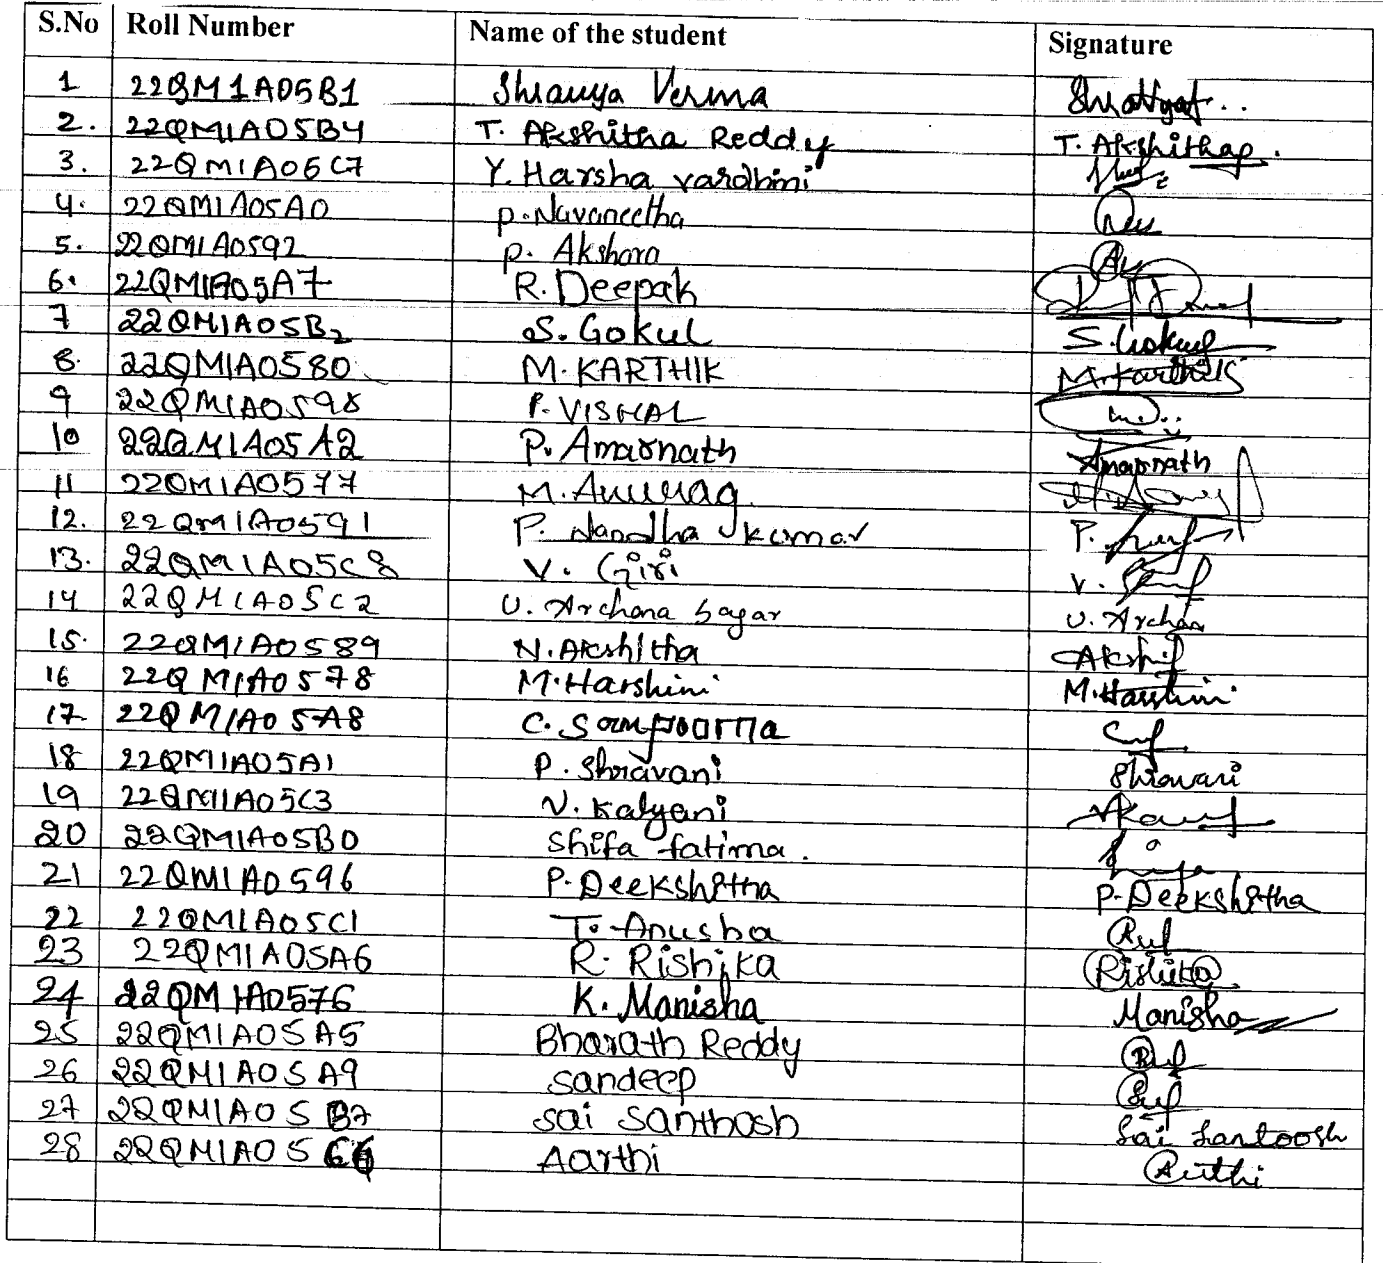 S.No Roll Number Name of the student Signature
1 22QM1A05B1 Shravya Verma
2. 22QM1A05B4 T. Akshitha Reddy T. Akshitha
3. 22QM1A05C7 Y. Harsha vardhini
4. 22QM1A05A0 P. Navaneetha
5. 22QM1A0592 P. Akshara
6. 22QM1A05A7 R. Deepak
7 22QM1A05B2 S. Gokul S. Gokul
8. 22QM1A0580 M. KARTHIK M. Karthik
9 22QM1A0598 P. VISHAL
10 22QM1A05A2 P. Amarnath Amarnath
11 22QM1A0577 M. Anurag
12. 22QM1A0591 P. Nandha kumar P.
13. 22QM1A05C8 V. Giri V.
14 22QM1A05C2 U. Archana Sagar U. Archana
15. 22QM1A0589 N. Akshitha Akshi
16 22QM1A0578 M. Harshini M. Harshini
17 22QM1A05A8 C. Sampoorna
18 22QM1A05A1 P. Shravani Shravani
19 22QM1A05C3 V. Kalyani
20 22QM1A05B0 Shifa fatima.
21 22QM1A0596 P. Deekshitha P. Deekshitha
22 22QM1A05C1 T. Anusha
23 22QM1A05A6 R. Rishika Rishika
24 22QM1A0576 K. Manisha Manisha
25 22QM1A05A5 Bharath Reddy
26 22QM1A05A9 Sandeep
27 22QM1A05B7 Sai Santhosh Sai Santoosh
28 22QM1A05 Aarthi Aarthi